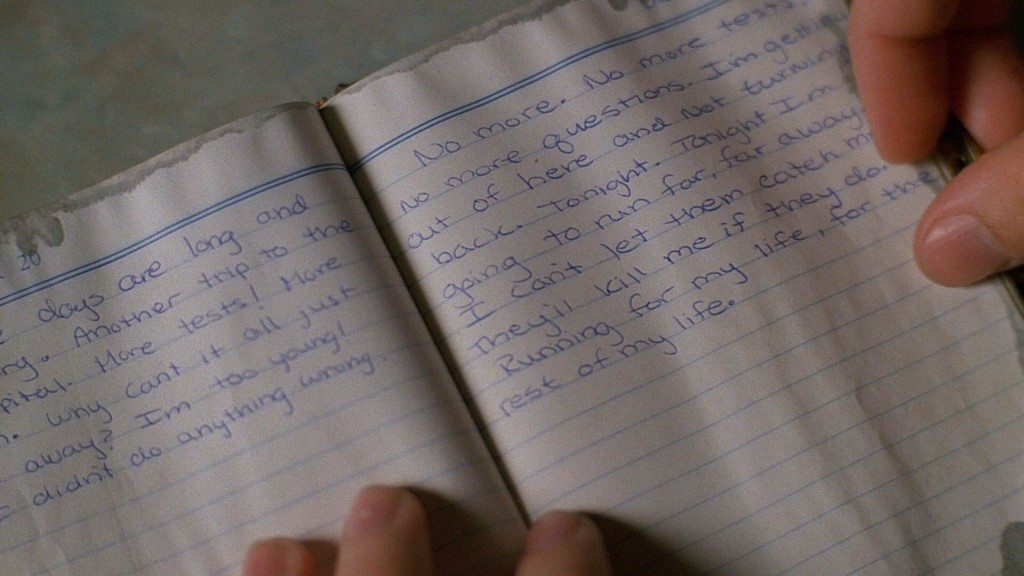 20
days are long and
Another trip to the
More tests! More
Why can't it all just
away? I'm too young!
I didn't do anything wrong.
No more. No more tests.
No more questions. I'm getting
out of here and not turning
back. Tonight. Tonight I'm
going to run far, far away.
I can't let them catch me
They'll kill me if they do.
Running for my life, for the
rest of my life.